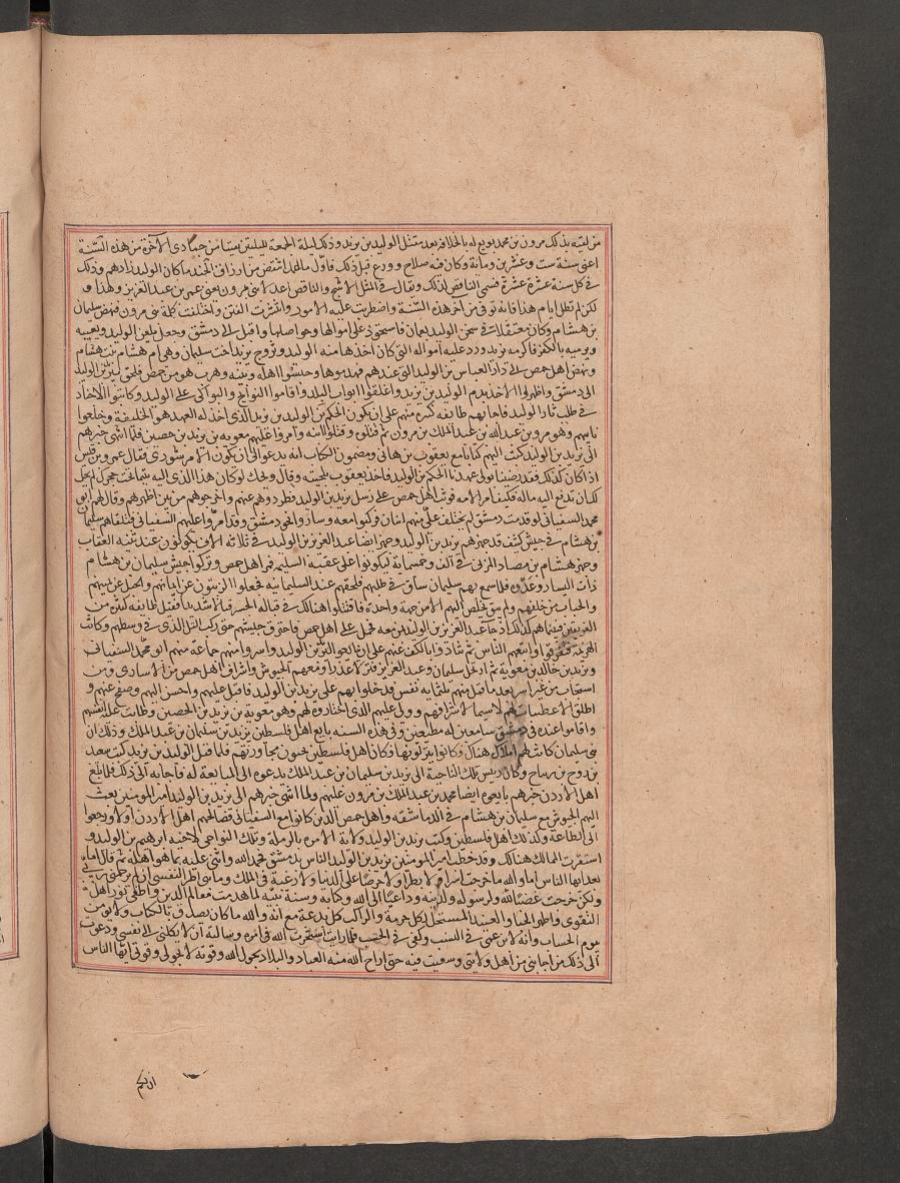 من لقبه بذلك مرون بن محمد بويع له بالخلافة بعد مقتل الوليد بن يزيد وذلك ليلة الجمعة لليلتين بقيتا من جمادى الآخرة من هذه السنة
اعنى سنة ست وعشرين ومائة وكان فيه صلاح وورع قبل ذلك فاول ما عمل انتقص من ارزاق الجند ما كان الوليد زادهم وذلك
في كل سنة عشرة عشرة فسمى الناقص لذلك ويقال في المثل الاشج والناقص اعدلا بنى مرون يعنى عمر بن عبد العزيز وهذا و
لكن لم تطل ايام هذا فانه توفى من آخر هذه السنة واضطربت عليه الامور وانتشرت الفتن واختلفت كلمة بنى مرون فنهض سليمان
بن هشام وكان معتقلا في سجن الوليد بعمان فاستحوذ على اموالها وحواصلها واقبل الى دمشق وجعل يلعن الوليد ويعيبه
ويرميه بالكفر فاكرمه يزيد ورد عليه امواله التى كان اخذها منه الوليد وتزوج يزيد اخت سليمان وهى ام هشام بنت هشام
ونهض اهل حمص الى دار العباس بن الوليد التى عندهم فهدموها وحبسوا اهله وبنيه وهرب هو من حمص فلحق بيزيد بن الوليد
الى دمشق واظهروا الاخذ بدم الوليد بن يزيد واغلقوا ابواب البلد واقاموا النوائح والبواكى على الوليد وكاتبوا الاجناد
في طلب ثار الوليد فاجابهم طايفة كبيرة منهم على ان يكون الحكم بن الوليد بن يزيد الذى اخذ له العهد هو الخليفة وخلعوا
نايبهم وهو مرون بن عبد الله بن عبد الملك بن مرون ثم قتلوه وقتلوا ابنه وامروا عليهم معوية بن يزيد بن حصين فلما انتهى خبرهم
الى يزيد بن الوليد كتب اليهم كتابا مع يعقوب بن هانى ومضمون الكتاب انه يدعو الى ان يكون الامر شورى فقال عمرو بن قيس
اذا كان كذلك فقد رضينا بولى عهدنا الحكم بن الوليد فاخذ يعقوب بلحيته وقال ويحك لو كان هذا الذى اليه يتيما تحت حجرك لم يحل
لك ان تدفع اليه ماله فكيف امر الامة فوثب اهل حمص على رسل يزيد بن الوليد فطردوهم عنهم واخرجوهم من بين اظهرهم وقال لهم ابو
محمد السفيانى لو قدمت دمشق لم يختلف على منهم اثنان فركبوا معه وساروا نحو دمشق وقد امروا عليهم السفيانى فتلقاهم سليمان
بن هشام في جيش كثيف قد جهزهم يزيد بن الوليد وجهز ايضا عبد العزيز بن الوليد في ثلاثة الاف يكونون عند ثنية العقاب
وجهز هشام بن مصاد المزنى في الف وخمسماية ليكونوا على عقبة السليمة فمر اهل حمص وتركوا جيش سليمان بن هشام
ذات اليسار وعدوه فلما سمع بهم سليمان ساق في طلبهم فلحقهم عند السليمانية فجعلوا الزيتون عن ايمانهم والجبل عن شمالهم
والجباب من خلفهم ولم يبق مخلص اليهم الا من جهة واحدة فاقتتلوا هنالك في قبالة الحر قتالا شديدا فقتل طايفة كثيرة من
الفريقين فبينما هم كذلك اذ جاء عبد العزيز بن الوليد بمن معه فحمل على اهل حمص فاخترق جيشهم حتى ركب التل الذى في وسطهم وكانت
الهزيمة فتفرقوا واتبعهم الناس ثم تنادوا بالكف عنهم على ان بايعوا ليزيد بن الوليد واسروا منهم جماعة منهم ابو محمد السفيانى
ويزيد بن خالد بن معوية ثم ارتحل سليمان وعبد العزيز فنزلا عذرا ومعهم الجيوش واشراف اهل حمص من الاسارى ومن
استجاب من غير اسر بعد ما قتل منهم ثلثماية نفس فدخلوا بهم على يزيد بن الوليد فاقبل عليهم واحسن اليهم وصفح عنهم و
اطلق الاعطيات لهم لا سيما لاشرافهم وولى عليهم الذى اختاروه لهم وهو معوية بن يزيد بن الحصين وطابت عليه انفسهم
واقاموا عنده في دمشق سامعين له مطيعين وفي هذه السنة بايع اهل فلسطين يزيد بن سليمان بن عبد الملك وذلك ان
بنى سليمان كانت لهم املاك هناك وكانوا ينزلونها وكان اهل فلسطين يحبون مجاورتهم فلما قتل الوليد بن يزيد كتب سعيد
بن روح بن زنباع وكان رييس تلك الناحية الى يزيد بن سليمان بن عبد الملك يدعوه الى المبايعة له فاجابه الى ذلك فلما بلغ
اهل الاردن خبرهم بايعوا ايضا محمد بن عبد الملك بن مرون عليهم ولما انتهى خبرهم الى يزيد بن الوليد امير المومنين بعث
اليهم الجيوش مع سليمان بن هشام في الدماشقة واهل حمص الذين كانوا مع السفيانى فصالحهم اهل الاردن اولا ورجعوا
الى الطاعة وكذلك اهل فلسطين وكتب يزيد بن الوليد ولاية الامرة بالرملة وتلك النواحى لاخيه ابرهيم بن الوليد و
استقرت الممالك هنالك وقد خطب امير المومنين يزيد بن الوليد الناس بدمشق فحمد الله واثنى عليه بما هو اهله ثم قال اما
بعد ايها الناس اما والله ما خرجت اشرا ولا بطرا ولا حرصا على الدنيا ولا رغبة في الملك وما بى اطراء نفسى ان لم يرحمنى ربى
ولكن خرجت غضبا لله ولرسوله ولدينه وداعيا الى الله وكتابه وسنة نبيه لما هدمت معالم الدين واطفى نور اهل
التقوى وظهر الجبار العنيد المستحل لكل حرمة والراكب كل بدعة مع انه والله ما كان يصدق بالكتاب ولا يومن
بيوم الحساب وانه لابن عمى في النسب وكفى في الحسب فلما رايت استخرت الله في امره وسالته ان لا يكلنى الى نفسى ودعوت
الى ذلك من اجابنى من اهل ولايتى وسعيت فيه حتى اراح الله منه العباد والبلاد بحول الله وقوته لا بحولى وقوتى ايها الناس
ان لكم